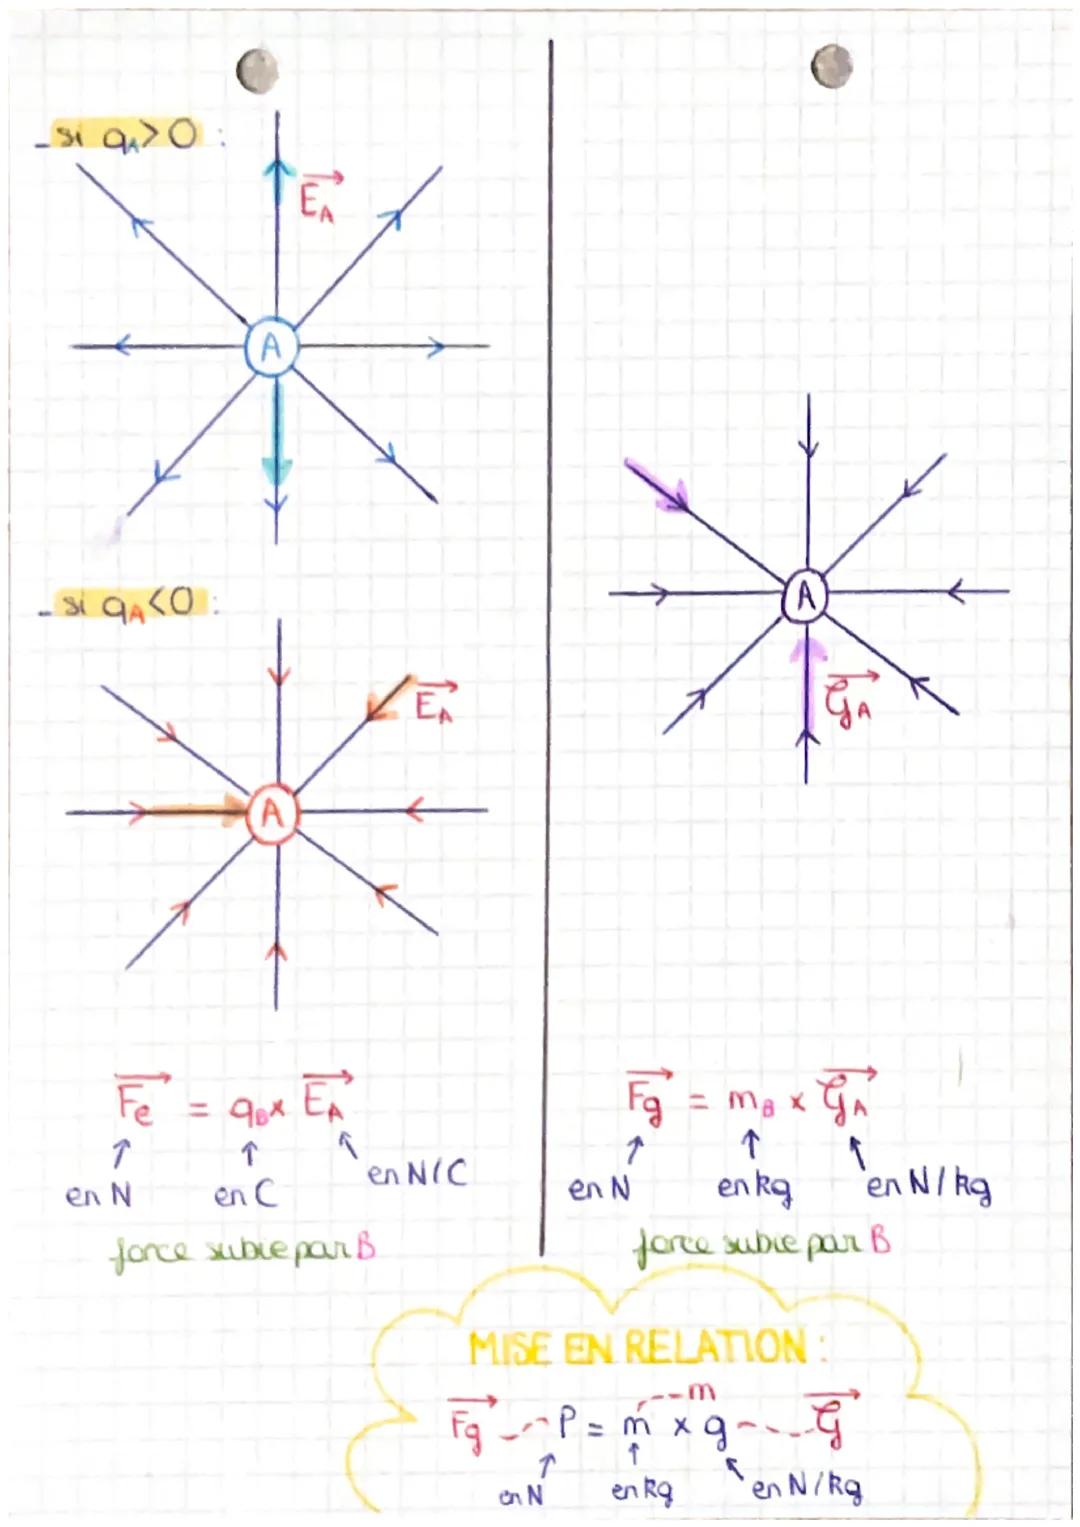 - si qA>0 :
EA
A
- si qA<0 :
EA
A
Fe = qB x EA
en N en C en N/C
force subie par B
A
GA
Fg = mB x GA
en N en kg en N/kg
force subie par B
MISE EN RELATION :
m
Fg P = m x g G
en N en kg en N/kg